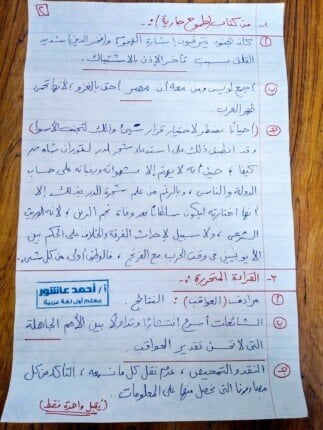 ٢
٢- من كتاب (طموح جارية) :-
أ) كان الجنود يترقبون إشارة الفهم و(فخر الدين) شديد
القلق بسبب تأخر الإذن بالاشتباك.
ب) أجمع لويس ومن معه أن مصر أحق بالغزو، لأنها تحمي
ظهر العرب.
ج) أحيانًا نضطر لاختيار قرار سيئ وذلك لتجنب الأسوأ)
وقد انطبق ذلك على استدعاء شجر الدر لتوران شاه من
كيفا، حيث أنه لا يهتم إلا بشهواته ورغباته على حساب
الدولة والناس، وبالرغم من علم شجرة الدر بذلك إلا
أنها اختارته ليكون سلطانًا بعد وفاة نجم الدين، لأنه الوريث
الشرعي، ولا سبيل لإحداث الفرقة والخلاف على الحكم بين
الأيوبيين في وقت الحرب مع الفرنج، فالوطن أولى من كل شيء.
٣- القراءة المتحررة :-
أ) مرادف (العواقب) : النتائج.
أ/ أحمد عاشور
معلم أول لغة عربية
ب) الشائعات أسرع انتشارًا وتداولًا بين الأمم الجاهلة
التي لا تحسن تقدير العواقب.
ج) النقد والتمحيص، عدم نقل كل ما نسمعه، التأكد من كل
مصادرنا التي نحصل منها على المعلومات.
(يكفي واحدة فقط)